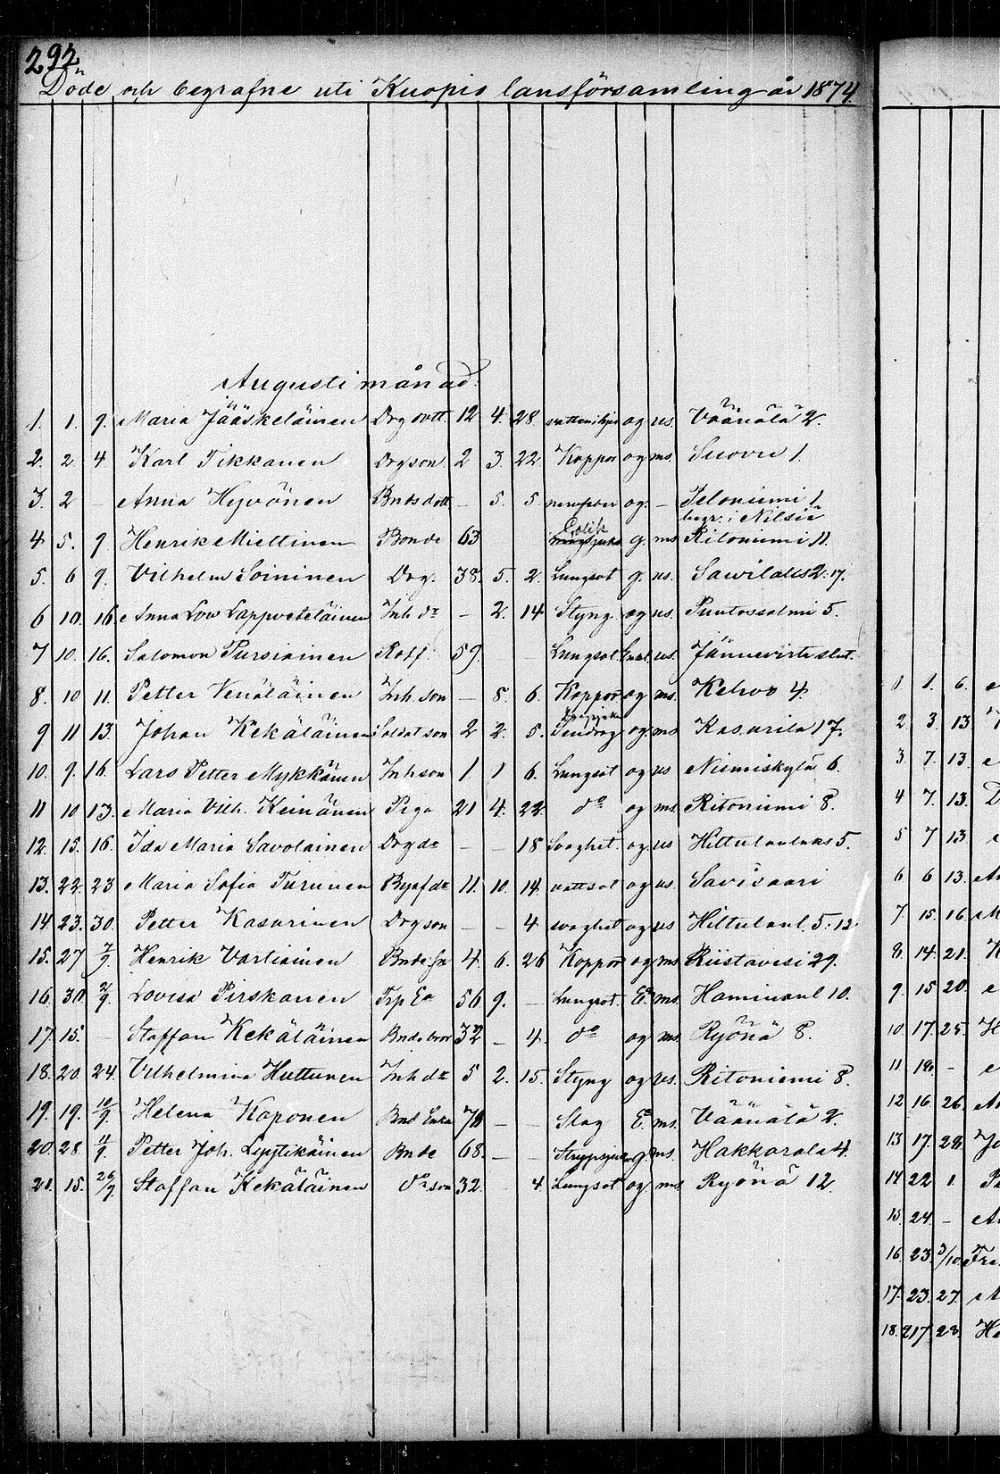 292
Döde och begrafne uti Kuopio lansförsamling år 1874
Augusti månad.
1. 1. 9. Maria Jääskeläinen Drg dott 12 4. 28. og us. Väänälä 2.
2. 2 4 Karl Tikkanen Drg son 2 3. 22 Koppor og ms. Suovu 1.
3. 2 – Anna Hyvönen Bndsdott – 5. 5 og. – Peloniemi 1
begr. i Nilsiä
Colik
4. 5. 9. Henrik Miettinen Bonde 63 g. ms Ritoniemi 11.
5. 6 9. Vilhelm Soininen Drg. 38. 5. 2. Lungsot g. us. Sawilaks 2. 17.
6 10. 16. Anna Lov Lappveteläinen Inh dr – 2. 14 Styng og us. Puutossalmi 5.
7 10. 16. Salomon Pursiainen 59. – Lungsot us. Jännevirta slut.
8. 10 11. Petter Venäläinen Inh. son – 5 6. Koppor og ms. Kehvo 4.
9 11 13. Johan Kekäläinen Soldat son 2 2. 5. og ms Kasurila 17.
10. 9. 16. Lars Petter Mykkänen Inh son 1 1 6. Lungsot og us Niemiskylä 6.
11 10 13. Maria Vilh. Keinänen Piga 21 4. 22. do og ms. Ritoniemi 8.
12. 15. 16. Ida Maria Savolainen Drg dr – – 18 Svaghet. og us Hiltulanlaks 5.
13. 22. 23 Maria Sofia Turunen 11. 10. 14. vattsot og us. Savisaari
14 23. 30. Petter Kasurinen Drg son – – 4 svaghet og us Hiltulanl. 5. 12.
15. 27 7/9. Henrik Vartiainen Bnde 4. 6. 26 Koppor og ms Riistavesi 29.
16. 30. 2/9. Lovisa Pirskanen Trp Ea 56 9. – Lungsot. Ea ms. Haminanl 10.
17. 15. – Staffan Kekäläinen Bnde 32 – 4. do og ms. Ryönä 8.
18. 20 24. Vilhelmina Huttunen Inh dr 5 2. 15. Styng og us. Ritoniemi 8.
19. 19. 10/9. Helena Koponen Bnd Enka – – Slag E. ms. Väänälä 2.
20. 28. 11/9. Petter Joh. Lyytikäinen Bnde 68. – – g. ms. Hakkarala 4.
21. 15. 26/9 Staffan Kekäläinen do son 32. 4. Lungsot og ms Ryönä 12.
1 1. 6.
2 3. 13.
3 7. 13.
4 7. 13.
5 7 13.
6 6 13.
7. 15. 16
8. 14. 21.
9. 15 20.
10 17. 25.
11 19. –
12 16 26.
13 17. 28.
14 22 1.
15. 24. –
16. 23. 3/10.
17. 23. 27.
18. 23.